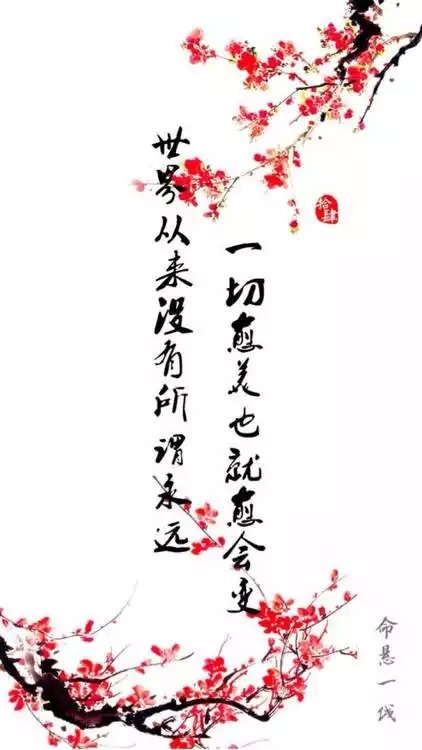 世界从来没有所谓永远
一切愈美也就愈会变
拾肆
命悬一线